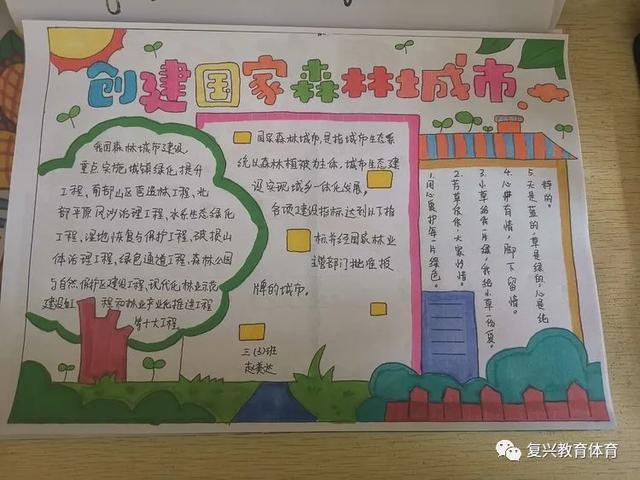 创建国家森林城市
我国森林城市建设
重点实施城镇绿化提升
工程、南部山区营造林工程、北
部平原风沙治理工程、水系生态绿化
工程、湿地恢复与保护工程、破损山
体治理工程、绿色通道工程、森林公园
与自然保护区建设工程、现代化林业示范
建设 工程和林业产业化推进工程
等十大工程。
国家森林城市,是指城市生态系
统以森林植被为主体,城市生态建
设实现城乡一体化发展,
各项建设指标达到以下指
标并经国家林业
主管部门批准授
牌的城市。
三(3)班
1.用心爱护每一片绿色。
2.芳草依依,大家怜惜。
3.小草给我一片绿,我给小草一份爱。
4.心带有情,脚下留情。
5.天是蓝的,草是绿的,心是纯
粹的。
复兴教育体育